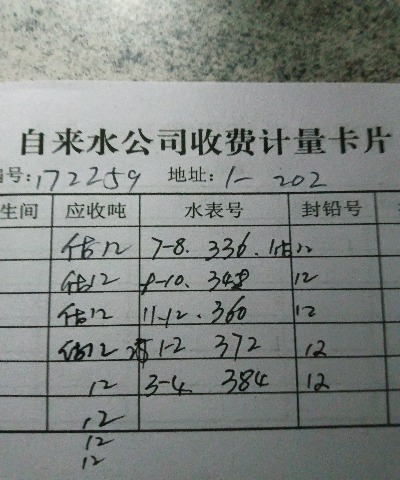 自来水公司收费计量卡片
编号:172259 地址:1-202
生间 应收吨 水表号 封铅号
估12 7-8. 336. 估12
估12 9-10. 348 12
估12 11-12. 360 12
估12 1-2 372 12
12 3-4 384 12
12
12
12